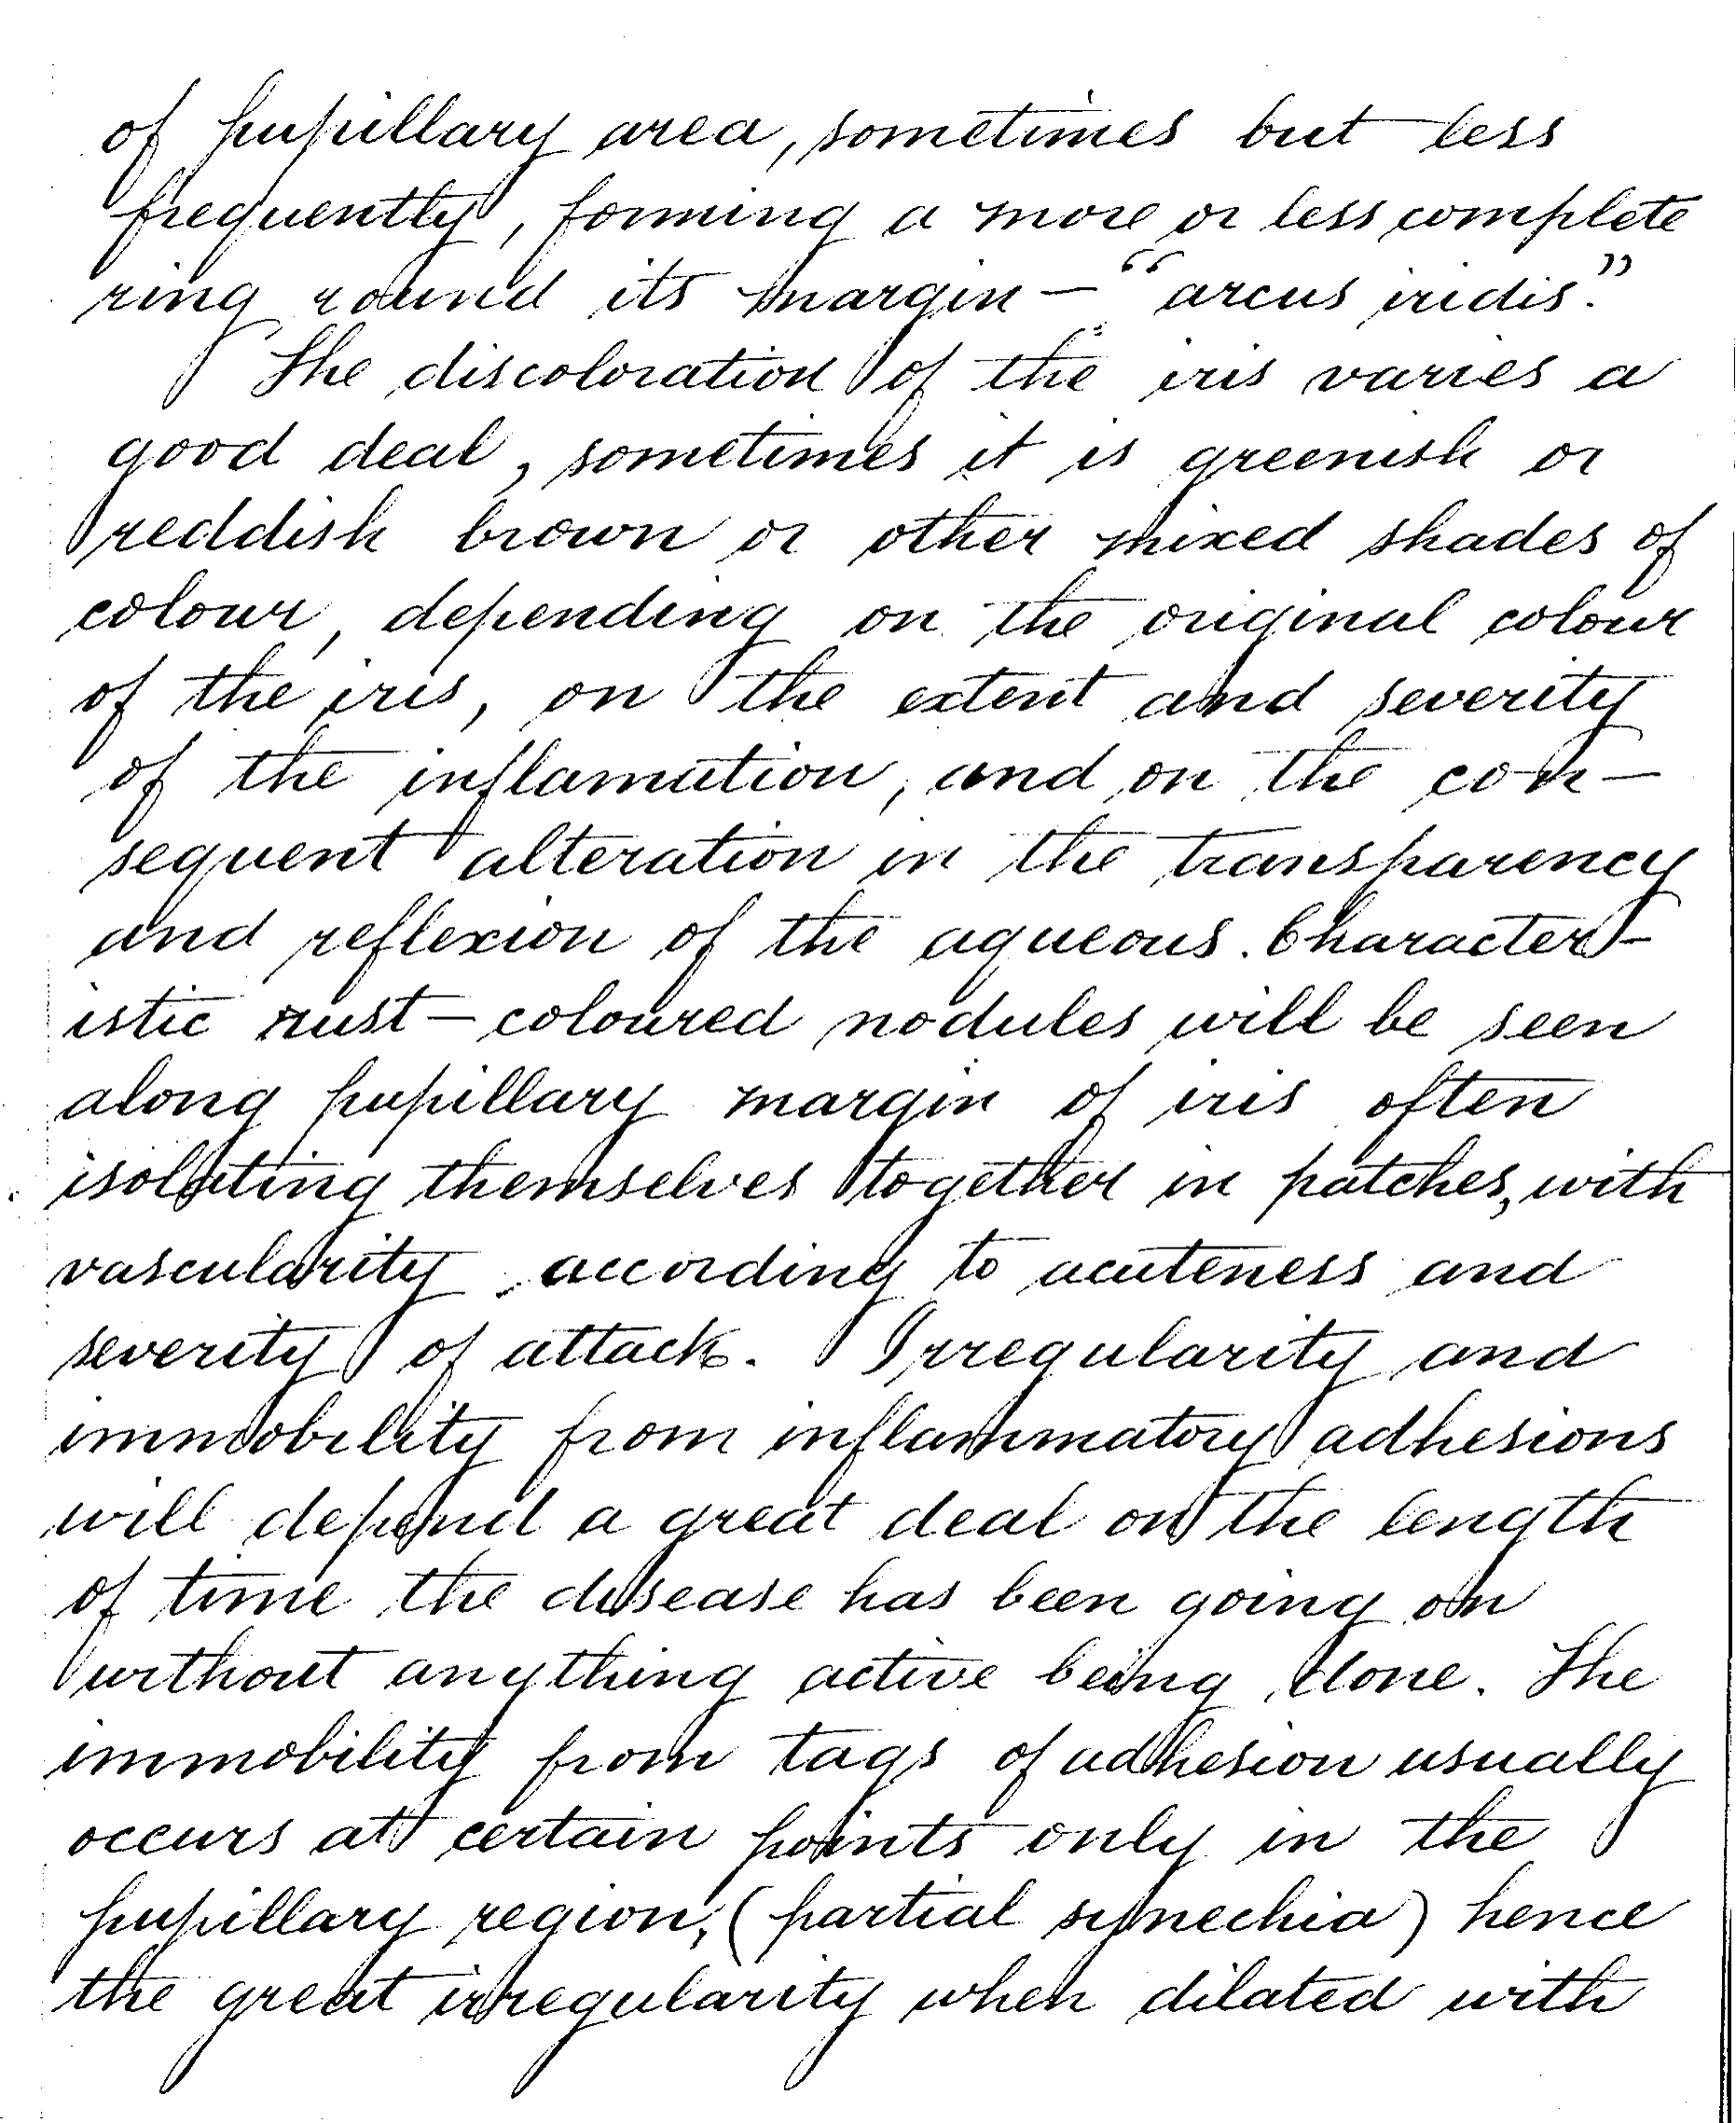 of pupillary area, sometimes but less
frequently, forming a more or less complete
ring round its margin — "arcus iridis."
The discoloration of the iris varies a
good deal, sometimes it is greenish or
reddish brown or other mixed shades of
colour, depending on the original colour
of the iris, on the extent and severity
of the inflamation, and on the con-
sequent alteration in the transparency
and reflexion of the aqueous. Character-
istic rust-coloured nodules will be seen
along pupillary margin of iris often
isolating themselves together in patches, with
vascularity according to acuteness and
severity of attack. Irregularity and
immobility from inflammatory adhesions
will depend a great deal on the length
of time the disease has been going on
without anything active being done. The
immobility from tags of adhesion usually
occurs at certain points only in the
pupillary region, (partial synechia) hence
the great irregularity when dilated with